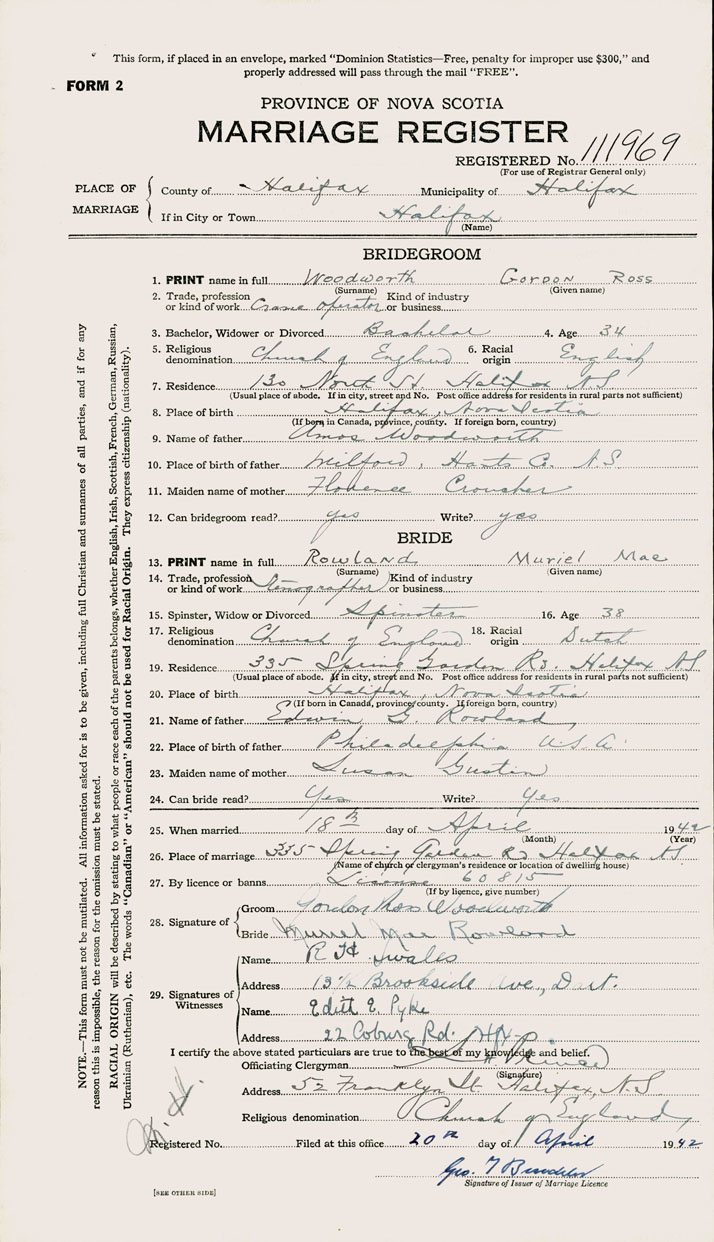 This form, if placed in an envelope, marked "Dominion Statistics—Free, penalty for improper use $300," and
properly addressed will pass through the mail "FREE".
FORM 2
PROVINCE OF NOVA SCOTIA
MARRIAGE REGISTER
REGISTERED No. 111969
(For use of Registrar General only)
PLACE OF MARRIAGE
County of Halifax Municipality of Halifax
If in City or Town Halifax
(Name)
BRIDEGROOM
1. PRINT name in full Woodworth Gordon Ross
(Surname) (Given name)
2. Trade, profession or kind of work Crane operator Kind of industry or business
3. Bachelor, Widower or Divorced Bachelor 4. Age 34
5. Religious denomination Church of England 6. Racial origin English
7. Residence 130 North St. Halifax N.S
(Usual place of abode. If in city, street and No. Post office address for residents in rural parts not sufficient)
8. Place of birth Halifax, Nova Scotia
(If born in Canada, province, county. If foreign born, country)
9. Name of father Amos Woodworth
10. Place of birth of father Milford, Hants Co. N.S.
11. Maiden name of mother Florence Croucher
12. Can bridegroom read? yes Write? yes
BRIDE
13. PRINT name in full Rowland Muriel Mae
(Surname) (Given name)
14. Trade, profession or kind of work Stenographer Kind of industry or business
15. Spinster, Widow or Divorced Spinster 16. Age 38
17. Religious denomination Church of England 18. Racial origin Dutch
19. Residence 335 Spring Garden Rd. Halifax N.S.
(Usual place of abode. If in city, street and No. Post office address for residents in rural parts not sufficient)
20. Place of birth Halifax, Nova Scotia
(If born in Canada, province, county. If foreign born, country)
21. Name of father Edwin G. Rowland
22. Place of birth of father Philadelphia U.S.A.
23. Maiden name of mother Susan Gustin
24. Can bride read? Yes Write? Yes
25. When married 18th day of April 1942
(Month) (Year)
26. Place of marriage 335 Spring Garden Rd Halifax N.S
(Name of church or clergyman's residence or location of dwelling house)
27. By licence or banns License 60815
(If by licence, give number)
28. Signature of
Groom Gordon Ross Woodworth
Bride Muriel Mae Rowland
29. Signatures of Witnesses
Name R H Swales
Address Brookside Ave., Dart.
Name Edith E. Pyke
Address 22 Coburg Rd. Hfx
I certify the above stated particulars are true to the best of my knowledge and belief.
Officiating Clergyman
(Signature)
Address 52 Franklyn St. Halifax, N.S
Religious denomination Church of England
Registered No. Filed at this office 20th day of April 1942
Geo. T
Signature of Issuer of Marriage Licence
[SEE OTHER SIDE]
NOTE.—This form must not be mutilated. All information asked for is to be given, including full Christian and surnames of all parties, and if for any
reason this is impossible, the reason for the omission must be stated.
RACIAL ORIGIN will be described by stating to what people or race each of the parents belongs, whether English, Irish, Scottish, French, German, Russian,
Ukrainian (Ruthenian), etc. The words "Canadian" or "American" should not be used for Racial Origin. They express citizenship (nationality).